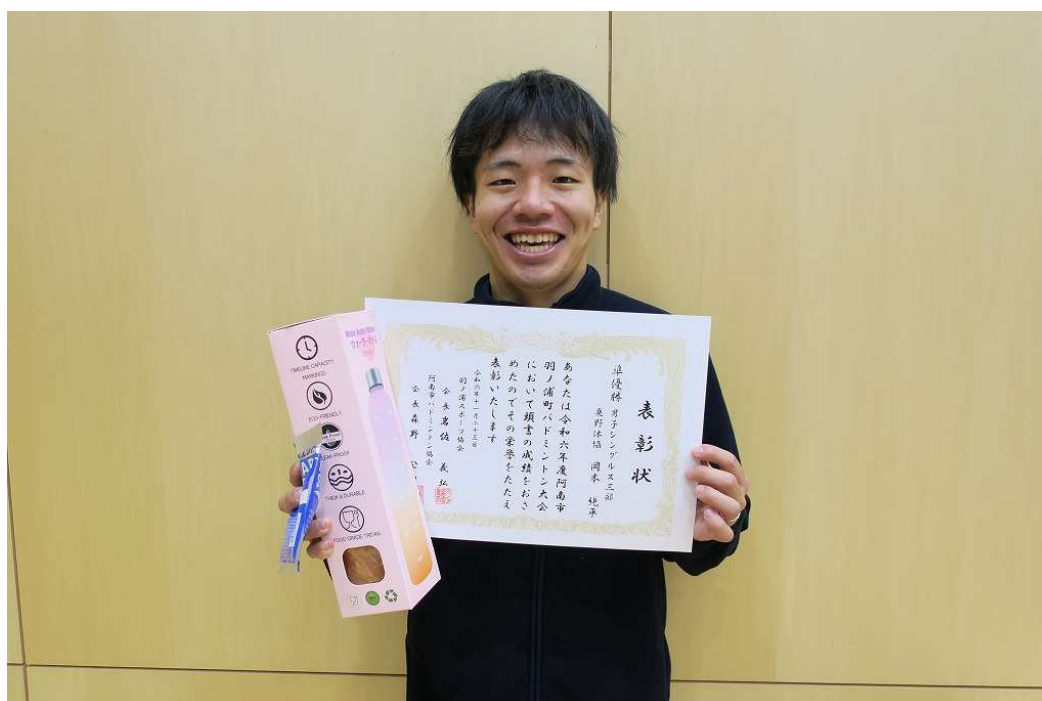 表彰状
準優勝 男子シングルス三部
桑野体協 岡本 純平
あなたは令和六年度阿南市
羽ノ浦町バドミントン大会
において頭書の成績をおさ
めたのでその栄誉をたたえ
表彰いたします
令和六年十一月二十三日
羽ノ浦スポーツ協会
会長 岩佐 義弘
阿南市バドミントン協会
会長 森野
TIMELINE CAPACITY
MARKINGS
ECO-FRIENDLY
LEAK PROOF
THICK & DURABLE
FOOD GRADE TRITAN